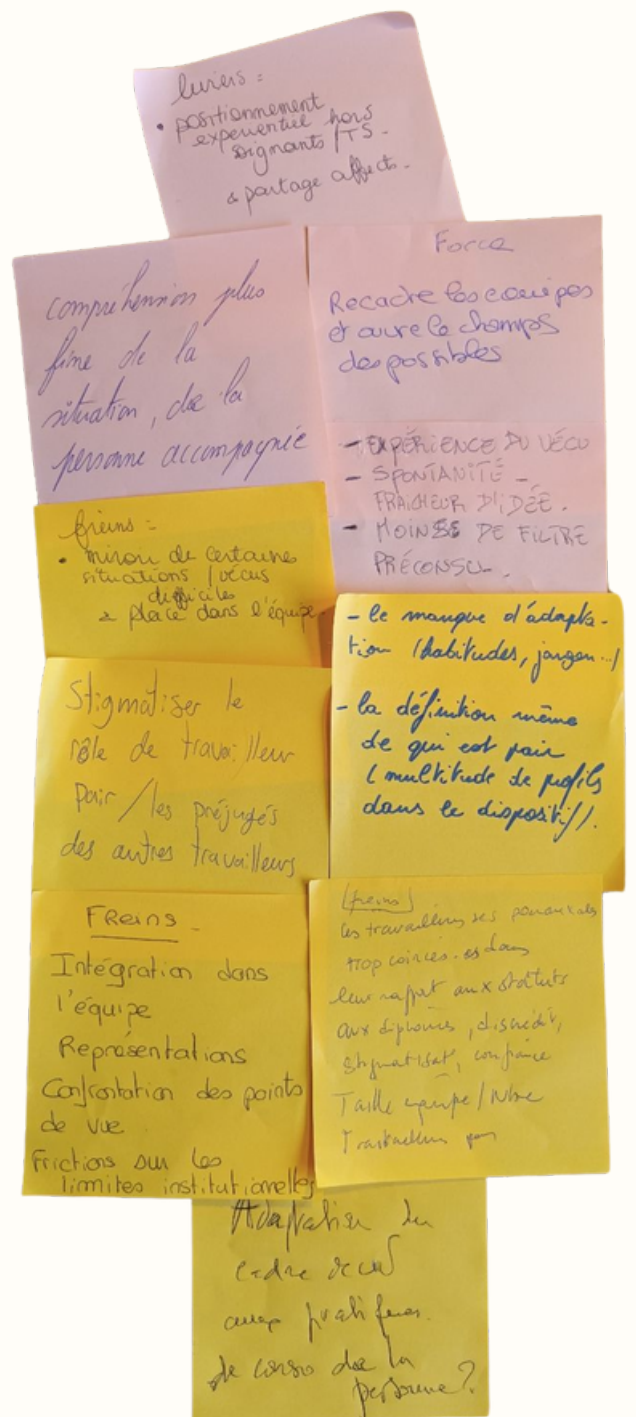 leviers :
• positionnement
expérientiel hors
soignants / TS.
& partage affects.
compréhension plus
fine de la
situation, de la
personne accompagnée
Force
Recadre les équipes
et ouvre le champs
des possibles
- EXPÉRIENCE DU VÉCU
- SPONTANÉITÉ -
FRAICHEUR D'IDÉE.
- MOINS DE FILTRE
PRÉCONSU.
freins :
• miroir de certaines
situations / vécus
difficiles
& place dans l'équipe.
- le manque d'adapta-
tion (habitudes, jargon...)
- la définition même
de qui est pair
(multitude de profils
dans le dispositif).
Stigmatiser le
rôle de travailleur
pair / les préjugés
des autres travailleurs
FReins -
Intégration dans
l'équipe
Représentations
Confrontation des points
de vue
Frictions sur les
limites institutionnelles
freins
les travailleurs ses
trop coincés.es dans
leur rapport aux statuts
aux diplômes, discrédit,
stigmatisat°, confiance
Taille équipe / Nbre
Travailleurs pairs
Adaptation du
cadre
aux pratiques
de conso de la
personne ?